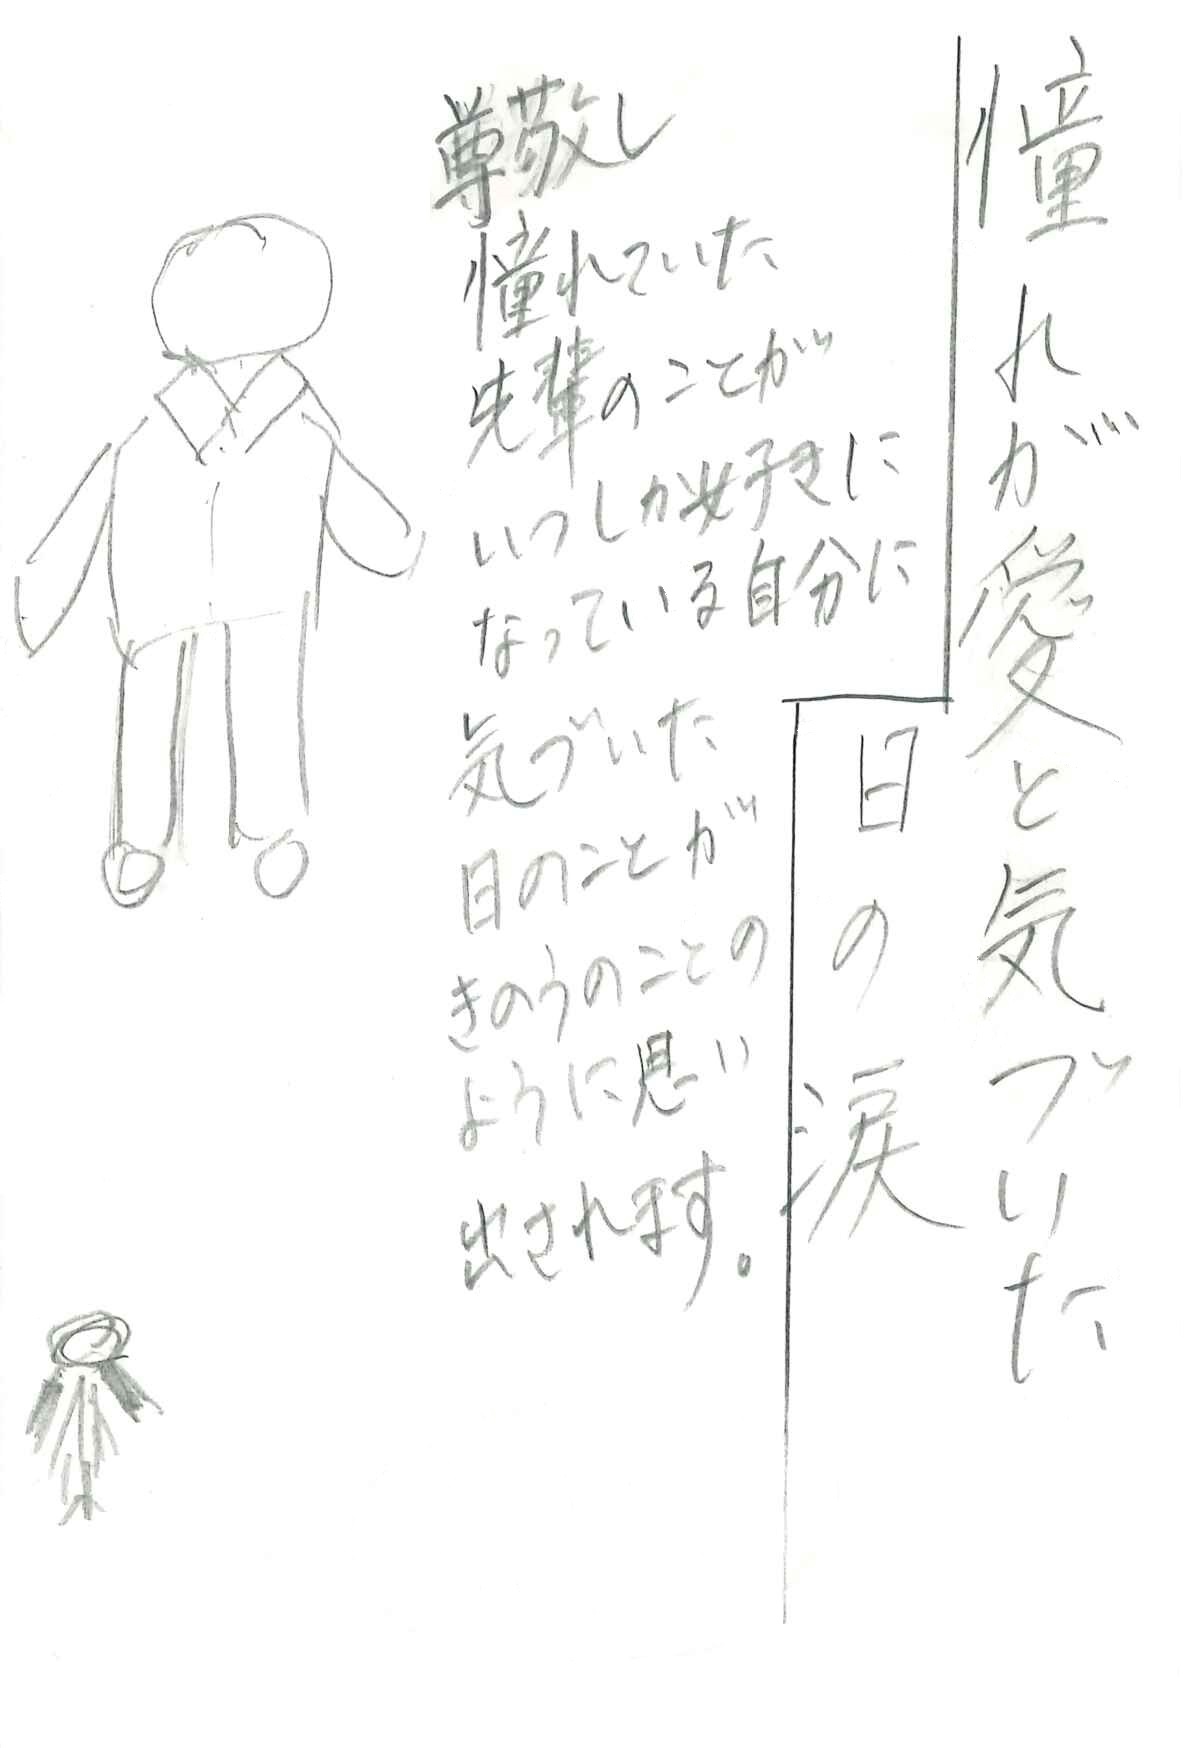 憧れが愛と気づいた
日の涙
尊敬し
憧れていた
先輩のことが
いつしか好きに
なっている自分に
気づいた
日のことが
きのうのことの
ように思い
出されます。